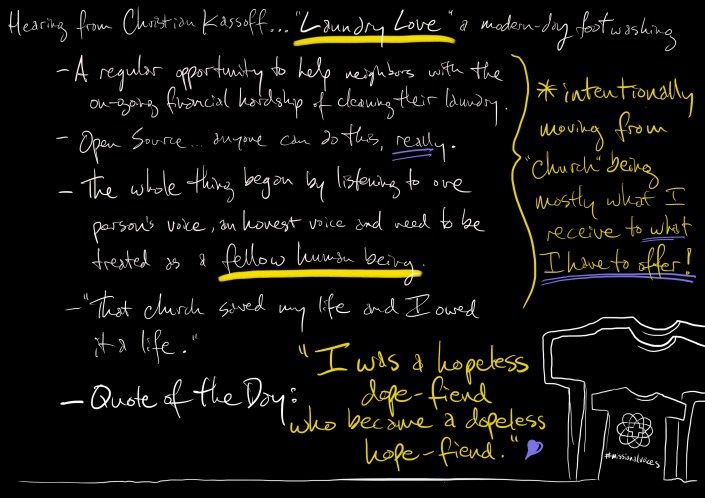 Hearing from Christian Kassoff... "Laundry Love" a modern-day footwashing
- A regular opportunity to help neighbors with the
on-going financial hardship of cleaning their laundry.
- Open Source... anyone can do this, really.
- The whole thing began by listening to one
person's voice, an honest voice and need to be
treated as a fellow human being.
- "That church saved my life and I owed
it a life."
- Quote of the Day:
"I was a hopeless
dope-fiend
who became a dopeless
hope-fiend."
* intentionally
moving from
"church" being
mostly what I
receive to what
I have to offer!
#missionalvoices